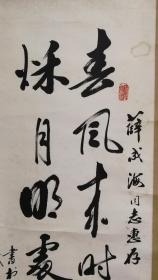 薛成海同志惠存
春风来时
秋月明处
书于